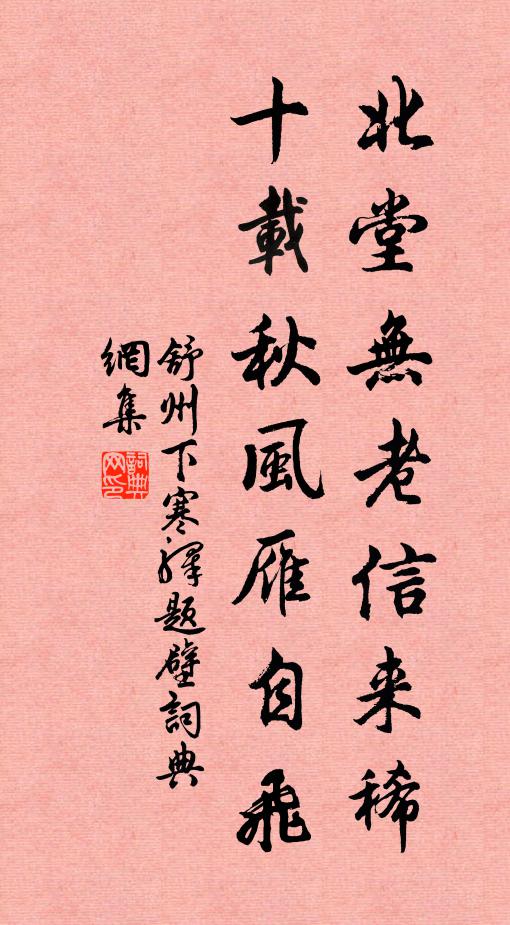 北堂無老信来稀
十載秋風雁自飛
舒州下寒驛題壁詞典
網集
詞典网印